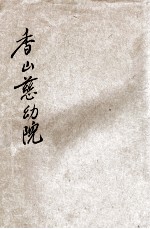 香山慈幼院